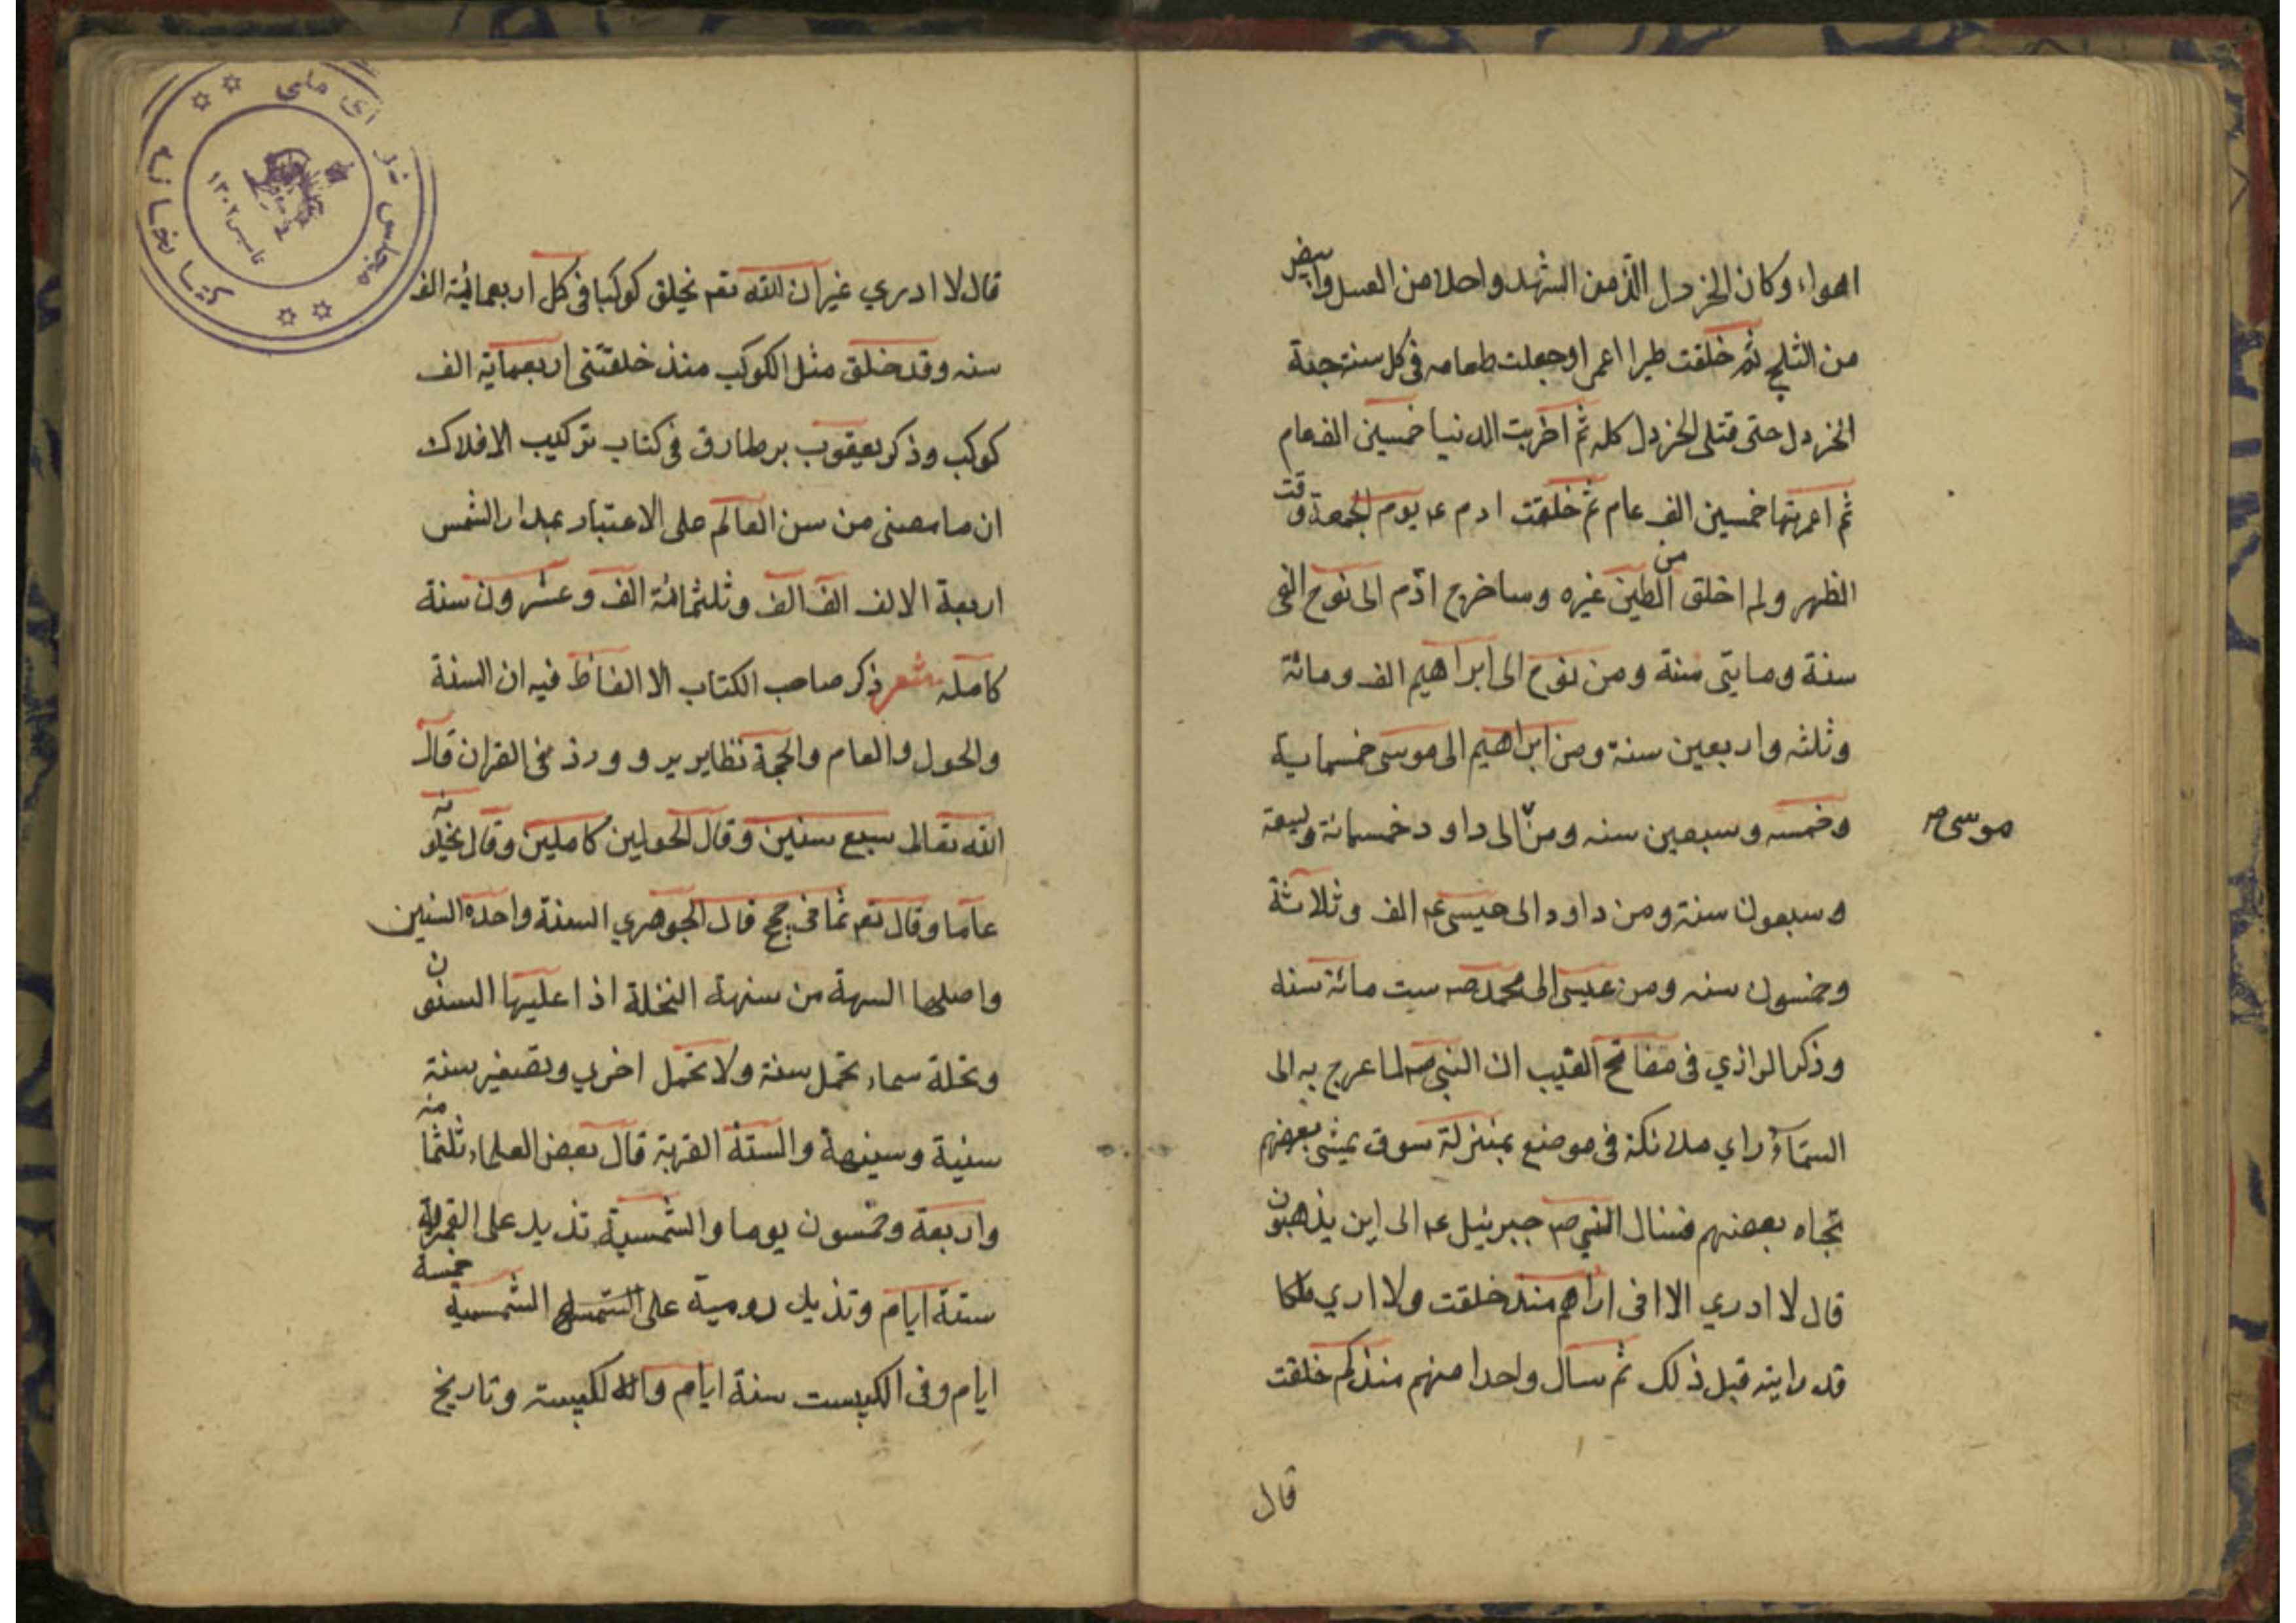 اهواء وكان الخردل الذ من الشهد واحلا من العسل وابيض
من الثلج ثم خلقت طيرا اعمرا وجعلت طعامه في كل سنة حبة
الخردل حتى فتلى الخردل كله ثم اخربت الدنيا خمسين الف عام
ثم اعمرتها خمسين الف عام ثم خلقت ادم عم يوم الجمعة وقت
الظهر ولم اخلق من الطين غيره وساخرج ادم الى نوح الفى
سنة ومايتى سنة ومن نوح الى ابراهيم الف ومائة
وثلثه واربعين سنة ومن ابراهيم الى موسى خمسماية
وخمسه وسبعين سنه ومن الى داود خمسمائة وتسعة
موسى ص
وسبعون سنة ومن داود الى عيسى عم الف وثلاثة
وخمسون سنه ومن عيسى الى محمد صم ست مائة سنه
وذكر الرازي في مفاتح الغيب ان النبي صم لما عرج به الى
السماء راي ملائكة في موضع بمنزلة سوق يمشى بعضهم
تجاه بعضهم فسال النبي صم جبرئيل عم الى اين يذهبون
قال لا ادري الا انى اراهم منذ خلقت ولا اري ملكا
قد رايته قبل ذلك ثم سال واحدا منهم منذ كم خلقت
قال
قال لا ادري غير ان الله تعم يخلق كوكبا في كل اربعمائة الف
سنه وقد خلق مثل الكوكب منذ خلقتنى اربعماية الف
كوكب وذكر يعقوب بر طارق في كتاب تركيب الافلاك
ان ما مضى من سن العالم على الاعتبار بمدار الشمس
اربعة الالف الف الف وثلثمائة الف وعشرون سنة
كامله شعر ذكر صاحب الكتاب الا الفاظ فيه ان السنة
والحول والعام والحجة نظاير يرو وورذ في القران قال
الله تعالى سبع سنين وقال الحولين كاملين وقال يحلونه
عاما وقال تعم ثمانى حجج قال الجوهري السنة واحده السنين
واصلها السهة من سنهة النخلة اذا عليها السنون
ونخلة سماء تحمل سنة ولا تحمل اخري وتصغير سنة
سنية وسينهة والسنة القرية قال بعض العلماء ثلثمائه
واربعة وخمسون يوما والشمسية تذيد على القمرية
ستة ايام وتذيد رومية على الشمسية خمسة
ايام وفى الكبيست ستة ايام والله لكبيسته وتاريخ
كتابخانه مجلس شورای ملی
تاسیس ۱۳۰۲